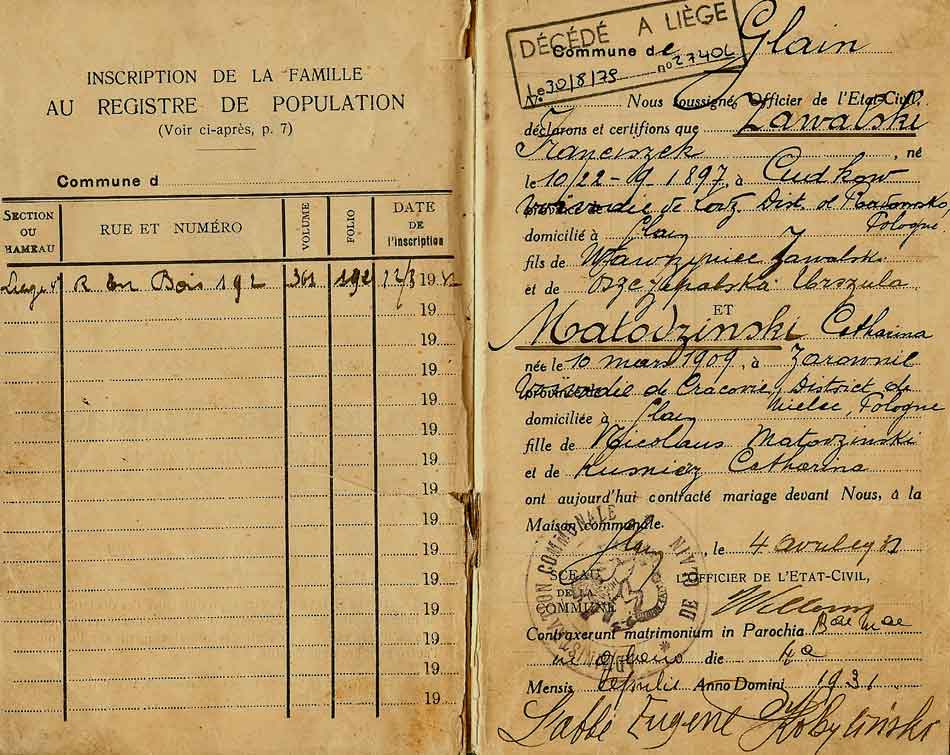 INSCRIPTION DE LA FAMILLE
AU REGISTRE DE POPULATION
(Voir ci-après, p. 7)
Commune d
SECTION OU HAMEAU
RUE ET NUMÉRO
VOLUME
FOLIO
DATE DE l'inscription
R En Bois 192 192 12/3 19
19
19
19
19
19
19
19
19
19
19
19
19
19
19
DÉCÉDÉ A LIÈGE
Le 30/8/79 n° 27406
Commune de Glain
Nous soussigné, Officier de l'Etat-Civil,
déclarons et certifions que Zawalski
Franciszek, né
le 10/22-9-1897, à
de Lodz Dist. de
Pologne
domicilié à Glain
fils de Wawrzyniec Zawalski
et de Urszula
ET
Matodzinski Catharina
née le 10 mars 1909, à Zarownie
de Cracovie, District de
domiciliée à Glain Mielec, Pologne
fille de Nicolaus Matodzinski
et de Kusnierz Catharina
ont aujourd'hui contracté mariage devant Nous, à la
Maison communale.
Glain, le 4 avril 1931
SCEAU
DE LA
COMMUNE
ADMINISTRATION COMMUNALE DE GLAIN
L'OFFICIER DE L'ETAT-CIVIL,
Contraxerunt matrimonium in Parochia
die 4a
Mensis Aprilis Anno Domini 1931
L'abbé Eugene Kobylinski